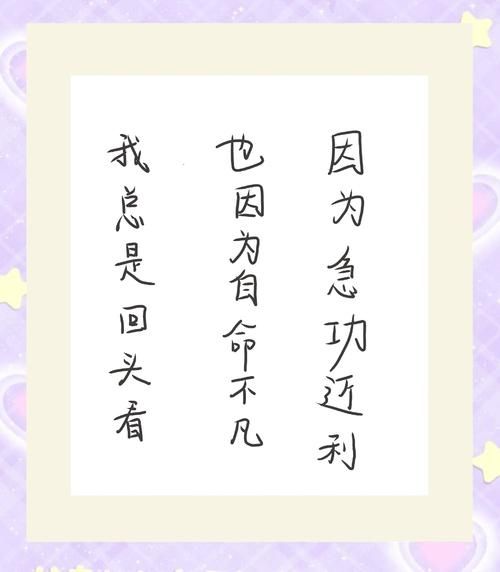 因为急功近利
也因为自命不凡
我总是回头看